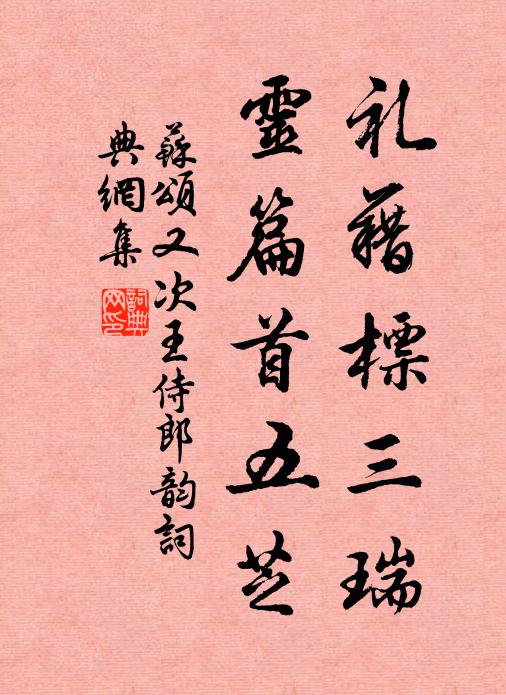 礼藉標三瑞
靈篇首五芝
蘇頌又次王侍郎韵詞
典網集
詞典网印